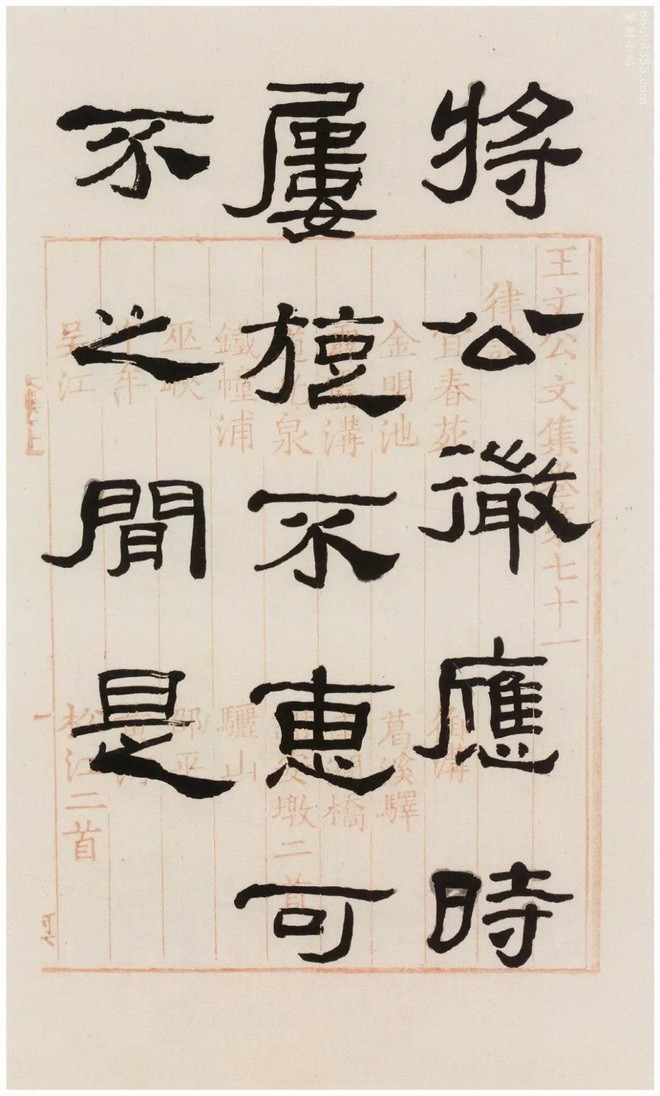 将公徵應時
屢旋不恵可
不之閒是
王文公文集卷第七十一
律詩
宜春苑
金明池 葛溪驛
溝 橋
泉 墩二首
鐵幢浦 驪山
巫峽 邵平
年
吳江 松江二首
86698355.com